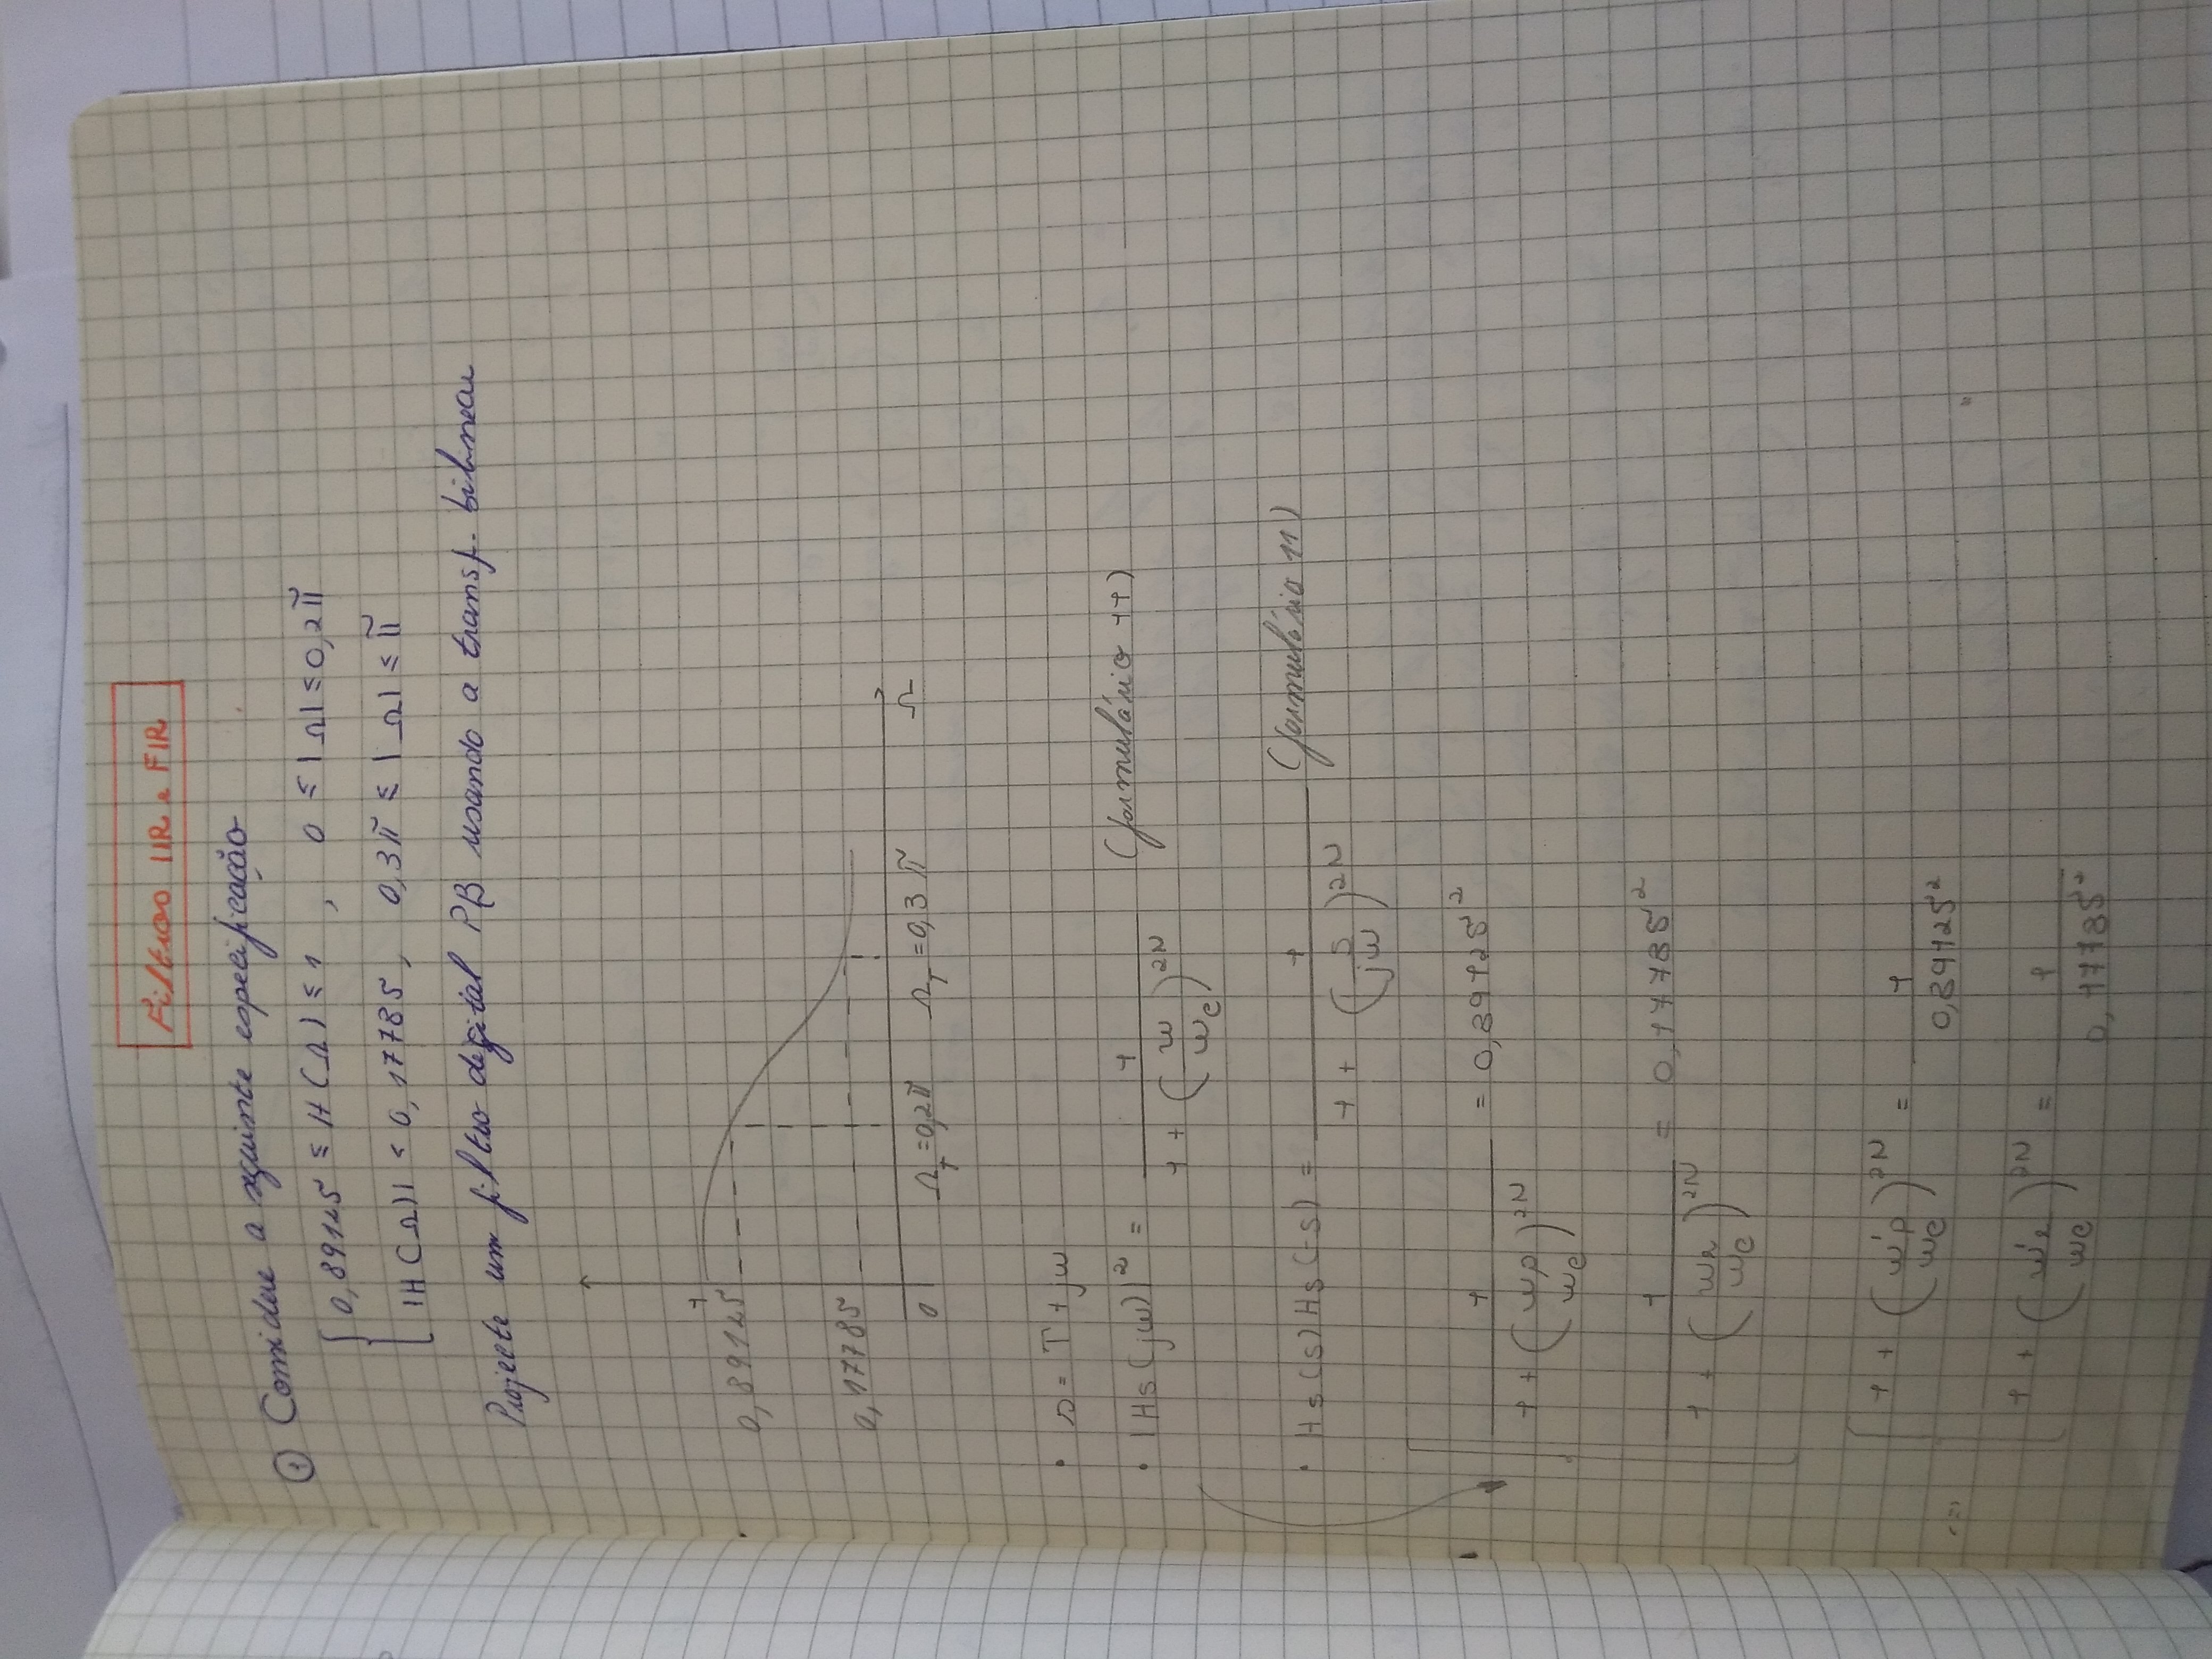 Filtros IIR e FIR
① Considere a seguinte especificação
0,89125 ≤ |H(Ω)| ≤ 1 , 0 ≤ |Ω| ≤ 0,2π
|H(Ω)| < 0,17785 , 0,3π ≤ |Ω| ≤ π
Projecte um filtro digital PB usando a transf. bilinear
1
0,89125
0,17785
0
Ωp=0,2π Ωr=0,3π Ω
• s = Γ + jω
• |Hs(jω)|² = 1 / (1 + (ω/ωc)^2N) (formulário 11)
• Hs(s)Hs(-s) = 1 / (1 + (s/jω)^2N) (formulário 11)
1 / (1 + (ωp/ωc)^2N) = 0,89125²
1 / (1 + (ωr/ωc)^2N) = 0,17785²
1 + (ω'p/ωc)^2N = 1 / 0,89125²
1 + (ω'r/ωc)^2N = 1 / 0,17785²